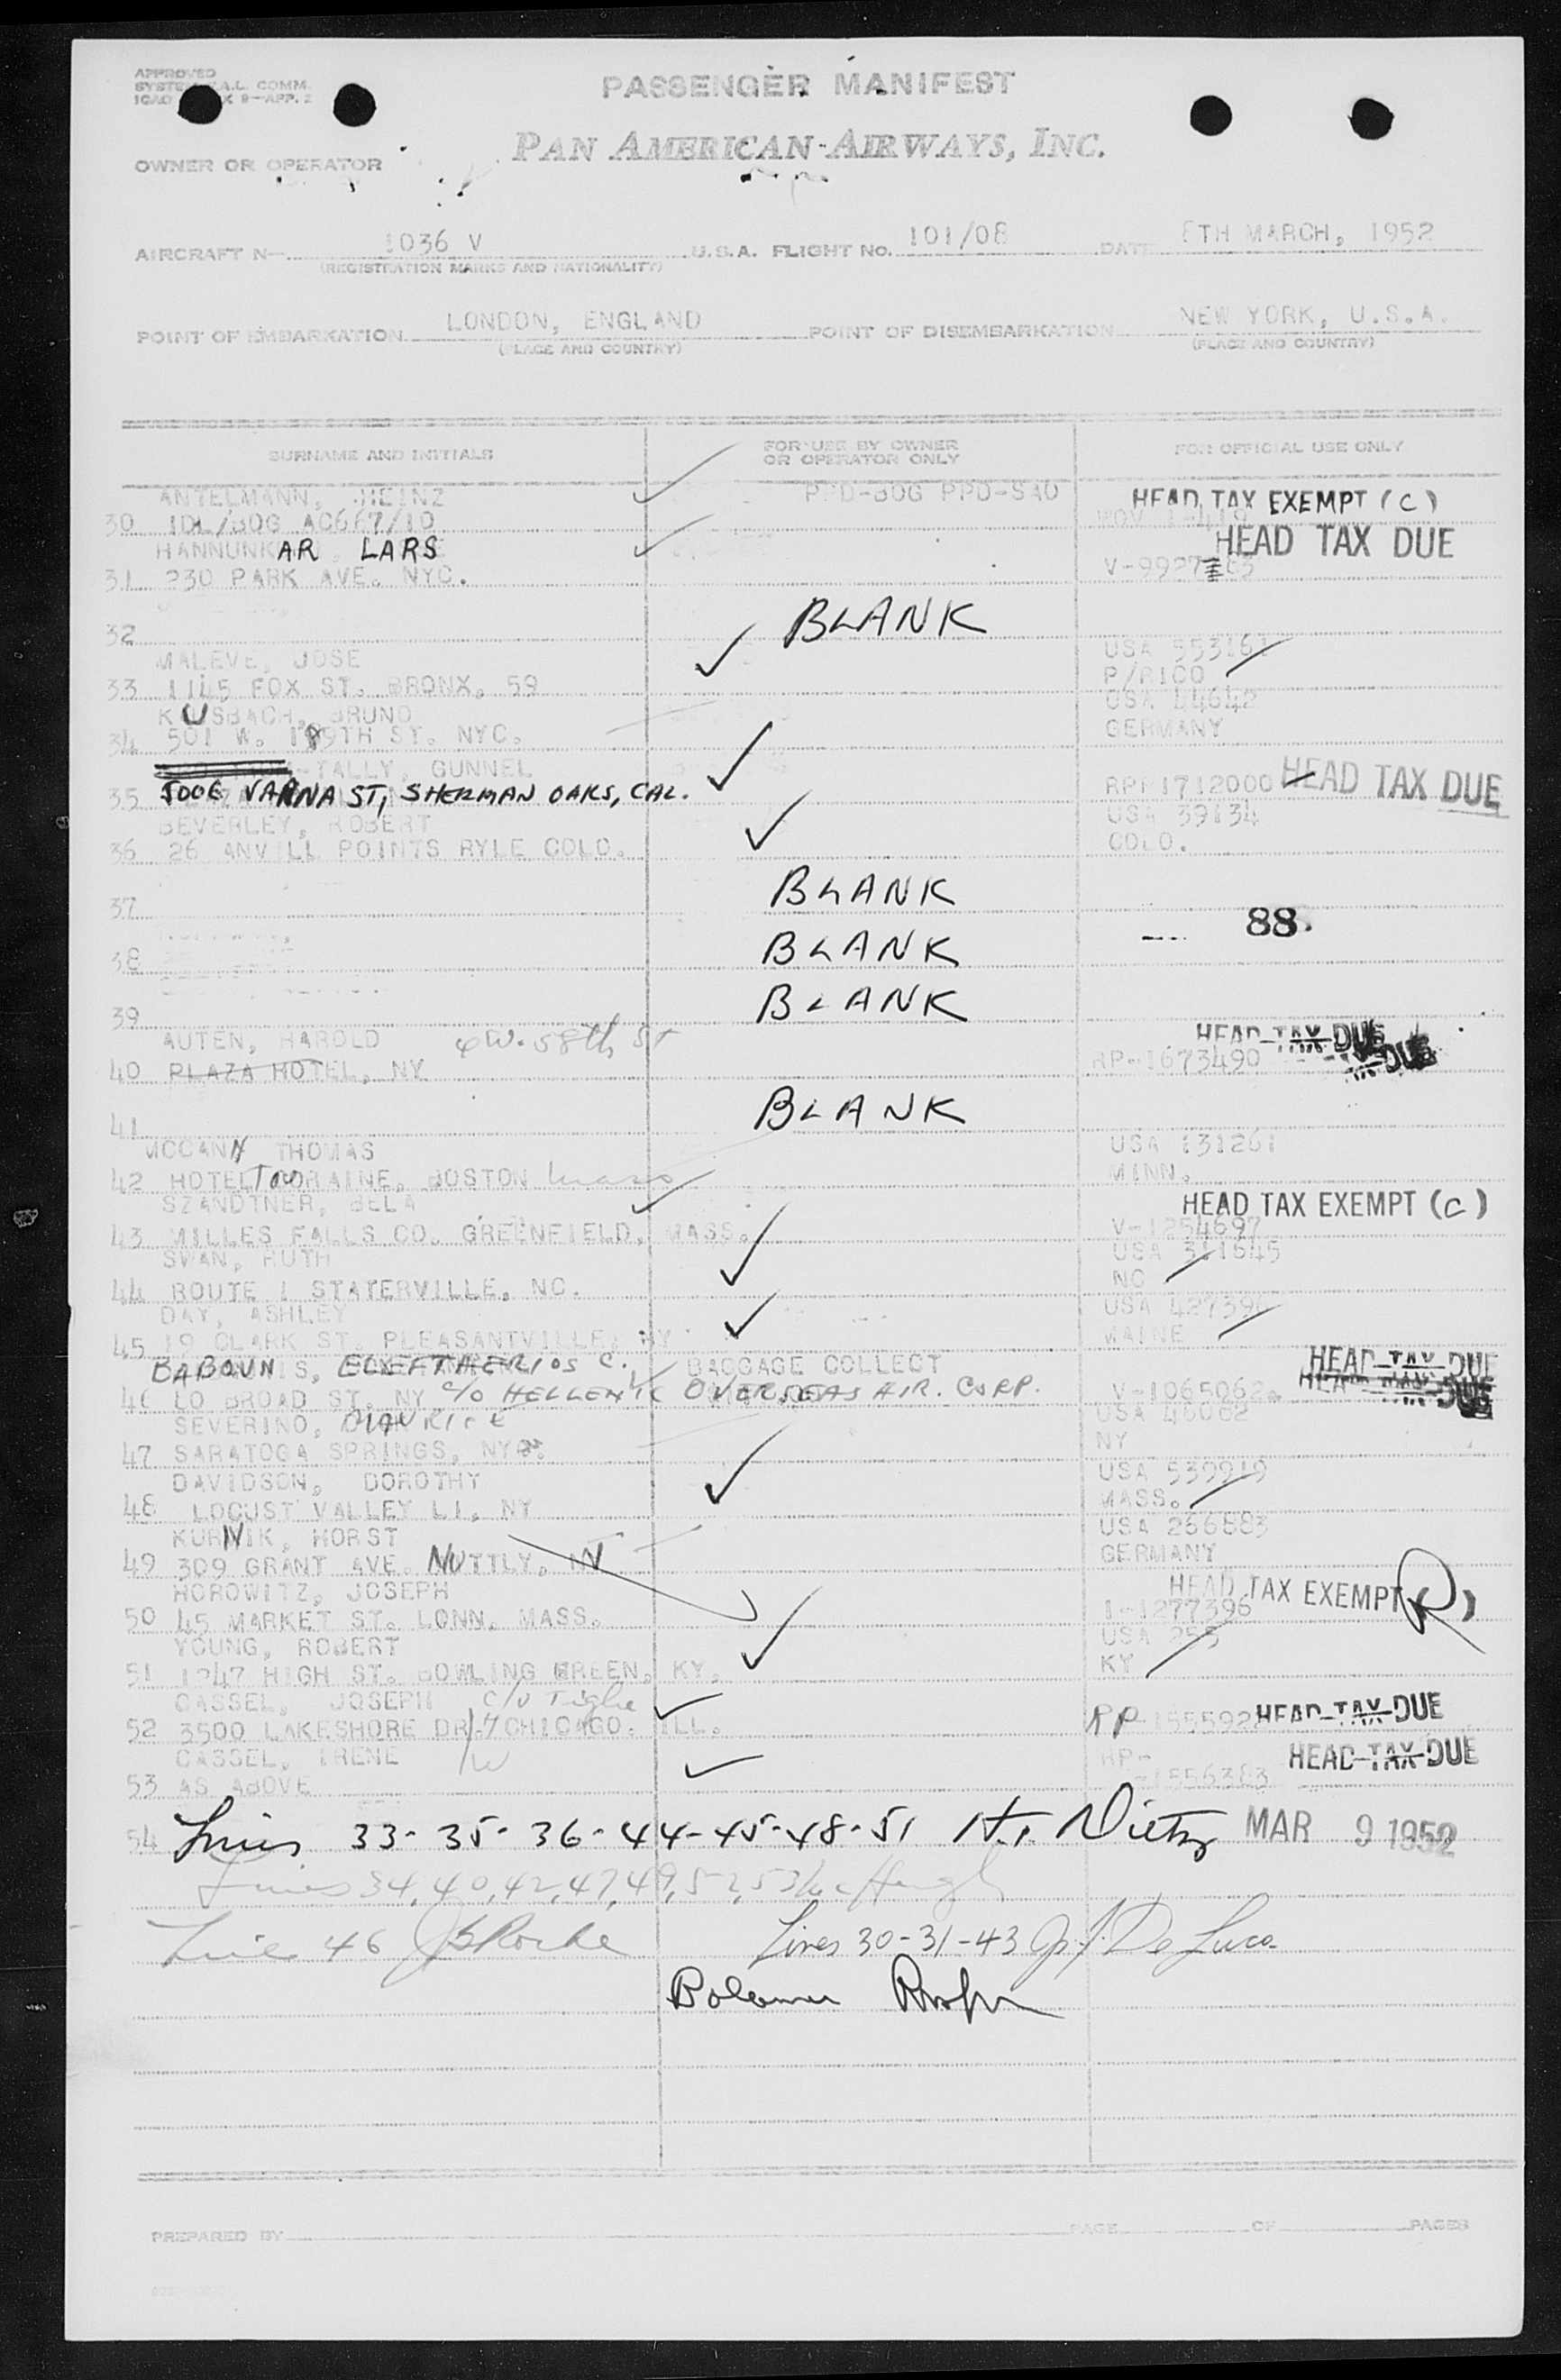 APPROVED
PASSENGER MANIFEST
PAN AMERICAN AIRWAYS, INC.
OWNER OR OPERATOR
AIRCRAFT N- 1036 V U.S.A. FLIGHT NO. 101/08 DATE 8TH MARCH, 1952
(REGISTRATION MARKS AND NATIONALITY)
POINT OF EMBARKATION LONDON, ENGLAND POINT OF DISEMBARKATION NEW YORK, U.S.A.
(PLACE AND COUNTRY) (PLACE AND COUNTRY)
SURNAME AND INITIALS FOR USE BY OWNER OR OPERATOR ONLY FOR OFFICIAL USE ONLY
ANTELMANN, HEINZ PPD-BOG PPD-SAO HEAD TAX EXEMPT (C)
30 IDL/BOG AC667/10
HANNUNKAR LARS HEAD TAX DUE
31 230 PARK AVE. NYC.
32 BLANK
MALEVE, JOSE USA 553161
33 1145 FOX ST. BRONX, 59 P/RICO
KAUSBACH, BRUNO USA 44642
34 501 W. 189TH ST. NYC. GERMANY
-TALLY, GUNNEL
35 5006 VARNA ST, SHERMAN OAKS, CAL. 1712000 HEAD TAX DUE
BEVERLEY, ROBERT USA 39134
36 26 ANVILL POINTS RYLE COLO. COLO.
37 BLANK
88
38 BLANK
39 BLANK
AUTEN, HAROLD 4 W. 58th ST HEAD TAX DUE
40 PLAZA HOTEL, NY RP-1673490
41 BLANK
MCCANN THOMAS USA 131261
42 HOTEL TOURAINE, BOSTON Mass MINN.
SZANDTNER, BELA HEAD TAX EXEMPT (C)
43 MILLES FALLS CO. GREENFIELD, MASS. V-1254697
SWAN, RUTH USA 311645
44 ROUTE 1 STATERVILLE, NC. NC
DAY, ASHLEY USA 42739
45 19 CLARK ST. PLEASANTVILLE, NY MAINE
BABOUNIS, ELEFTHERIOS C. BAGGAGE COLLECT HEAD TAX DUE
46 80 BROAD ST. NY C/O HELLENIC OVERSEAS AIR. CORP. V-1065062
SEVERINO, MAURICE USA 46062
47 SARATOGA SPRINGS, NY. NY
DAVIDSON, DOROTHY USA 539919
48 LOCUST VALLEY LI, NY MASS.
KURNIK, HORST USA 266883
49 309 GRANT AVE. NUTTLY, NJ GERMANY
HOROWITZ, JOSEPH HEAD TAX EXEMPT (R)
50 45 MARKET ST. LONN, MASS. I-1277396
YOUNG, ROBERT USA 255
51 1247 HIGH ST. BOWLING GREEN, KY. KY
CASSEL, JOSEPH c/o Tighe
52 3500 LAKESHORE DR. CHICAGO. ILL. RP 155592 HEAD TAX DUE
CASSEL, IRENE RP- HEAD TAX DUE
53 AS ABOVE 1556383
54 Lines 33-35-36-44-45-48-51 H. Dietz MAR 9 1952
Lines 34, 40, 42, 47, 49, 52, 53
Line 46 JB Roche Lines 30-31-43 De Luca
PREPARED BY PAGE OF PAGES